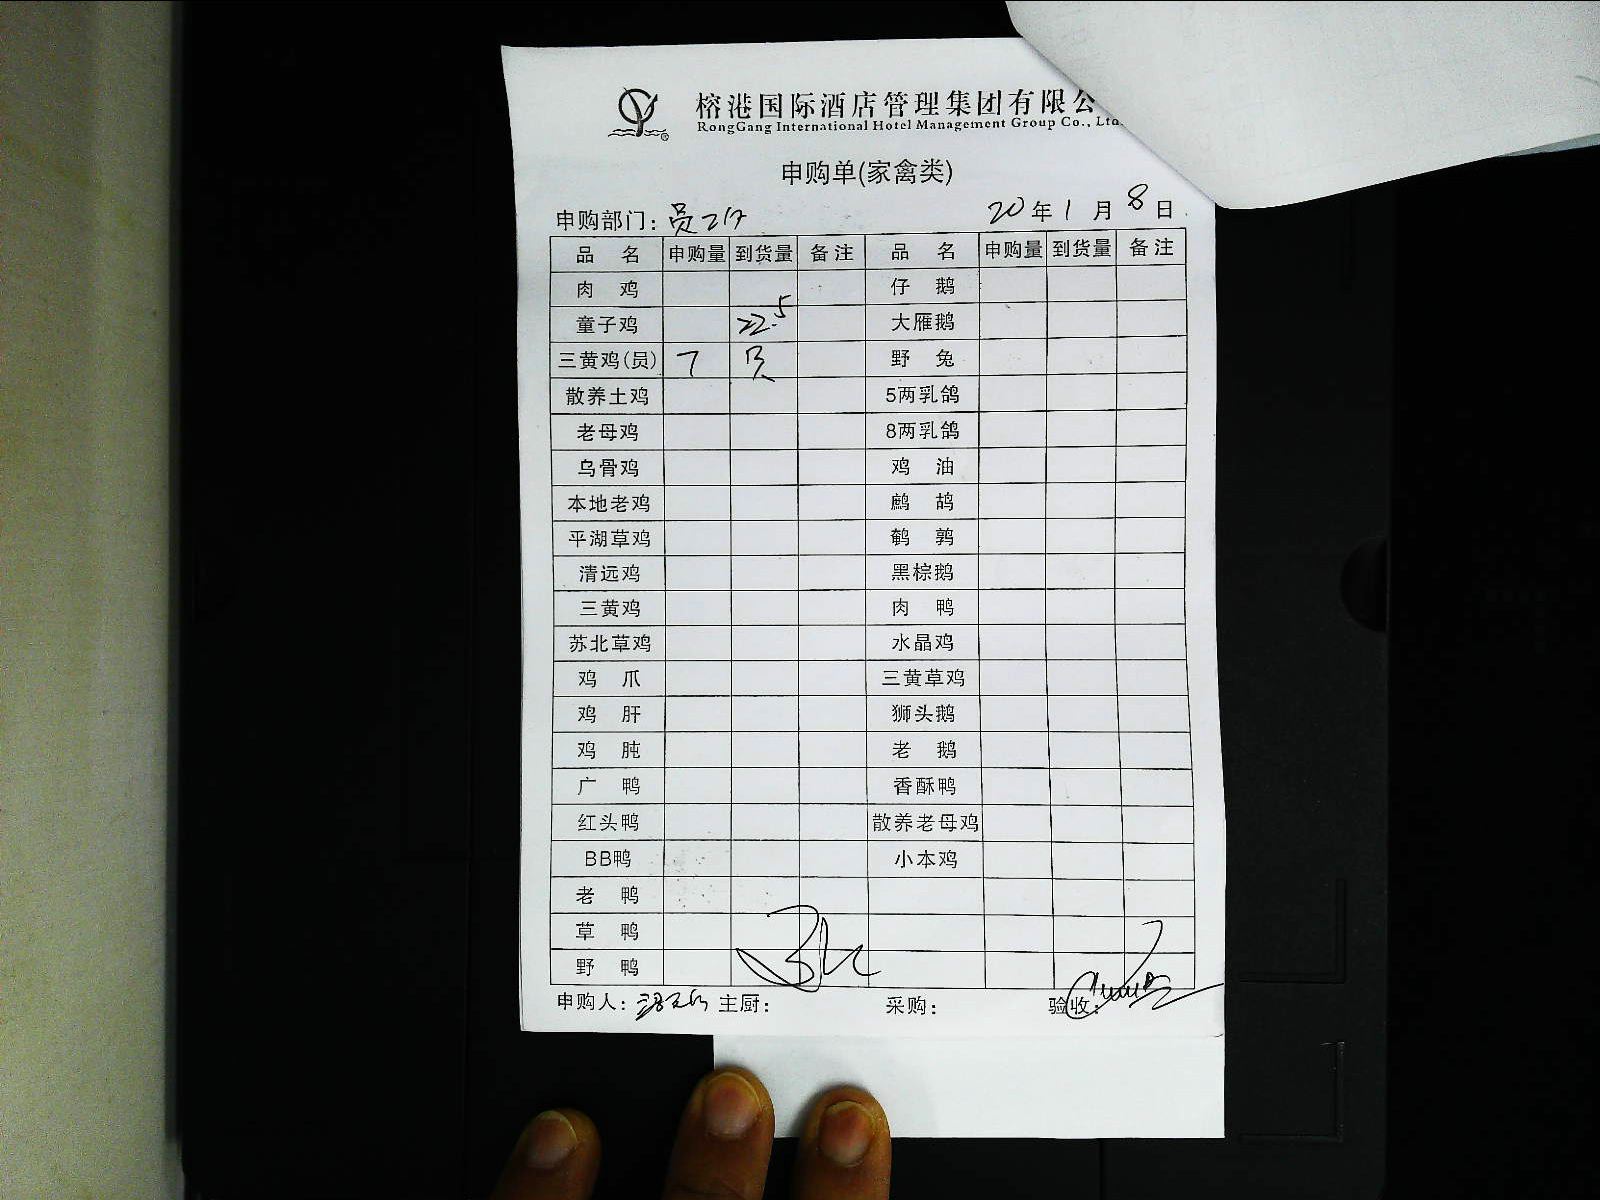 榕港国际酒店管理集团有限公
RongGang International Hotel Management Group Co., Ltd.
申购单(家禽类)
申购部门: 员工 20年1月8日
品 名 申购量 到货量 备注 品 名 申购量 到货量 备注
肉 鸡 仔 鹅
童子鸡 22.5 大雁鹅
三黄鸡(员) 7 野 兔
散养土鸡 5两乳鸽
老母鸡 8两乳鸽
乌骨鸡 鸡 油
本地老鸡 鹧 鸪
平湖草鸡 鹌 鹑
清远鸡 黑棕鹅
三黄鸡 肉 鸭
苏北草鸡 水晶鸡
鸡 爪 三黄草鸡
鸡 肝 狮头鹅
鸡 肫 老 鹅
广 鸭 香酥鸭
红头鸭 散养老母鸡
BB鸭 小本鸡
老 鸭
草 鸭
野 鸭
申购人: 主厨: 采购: 验收: